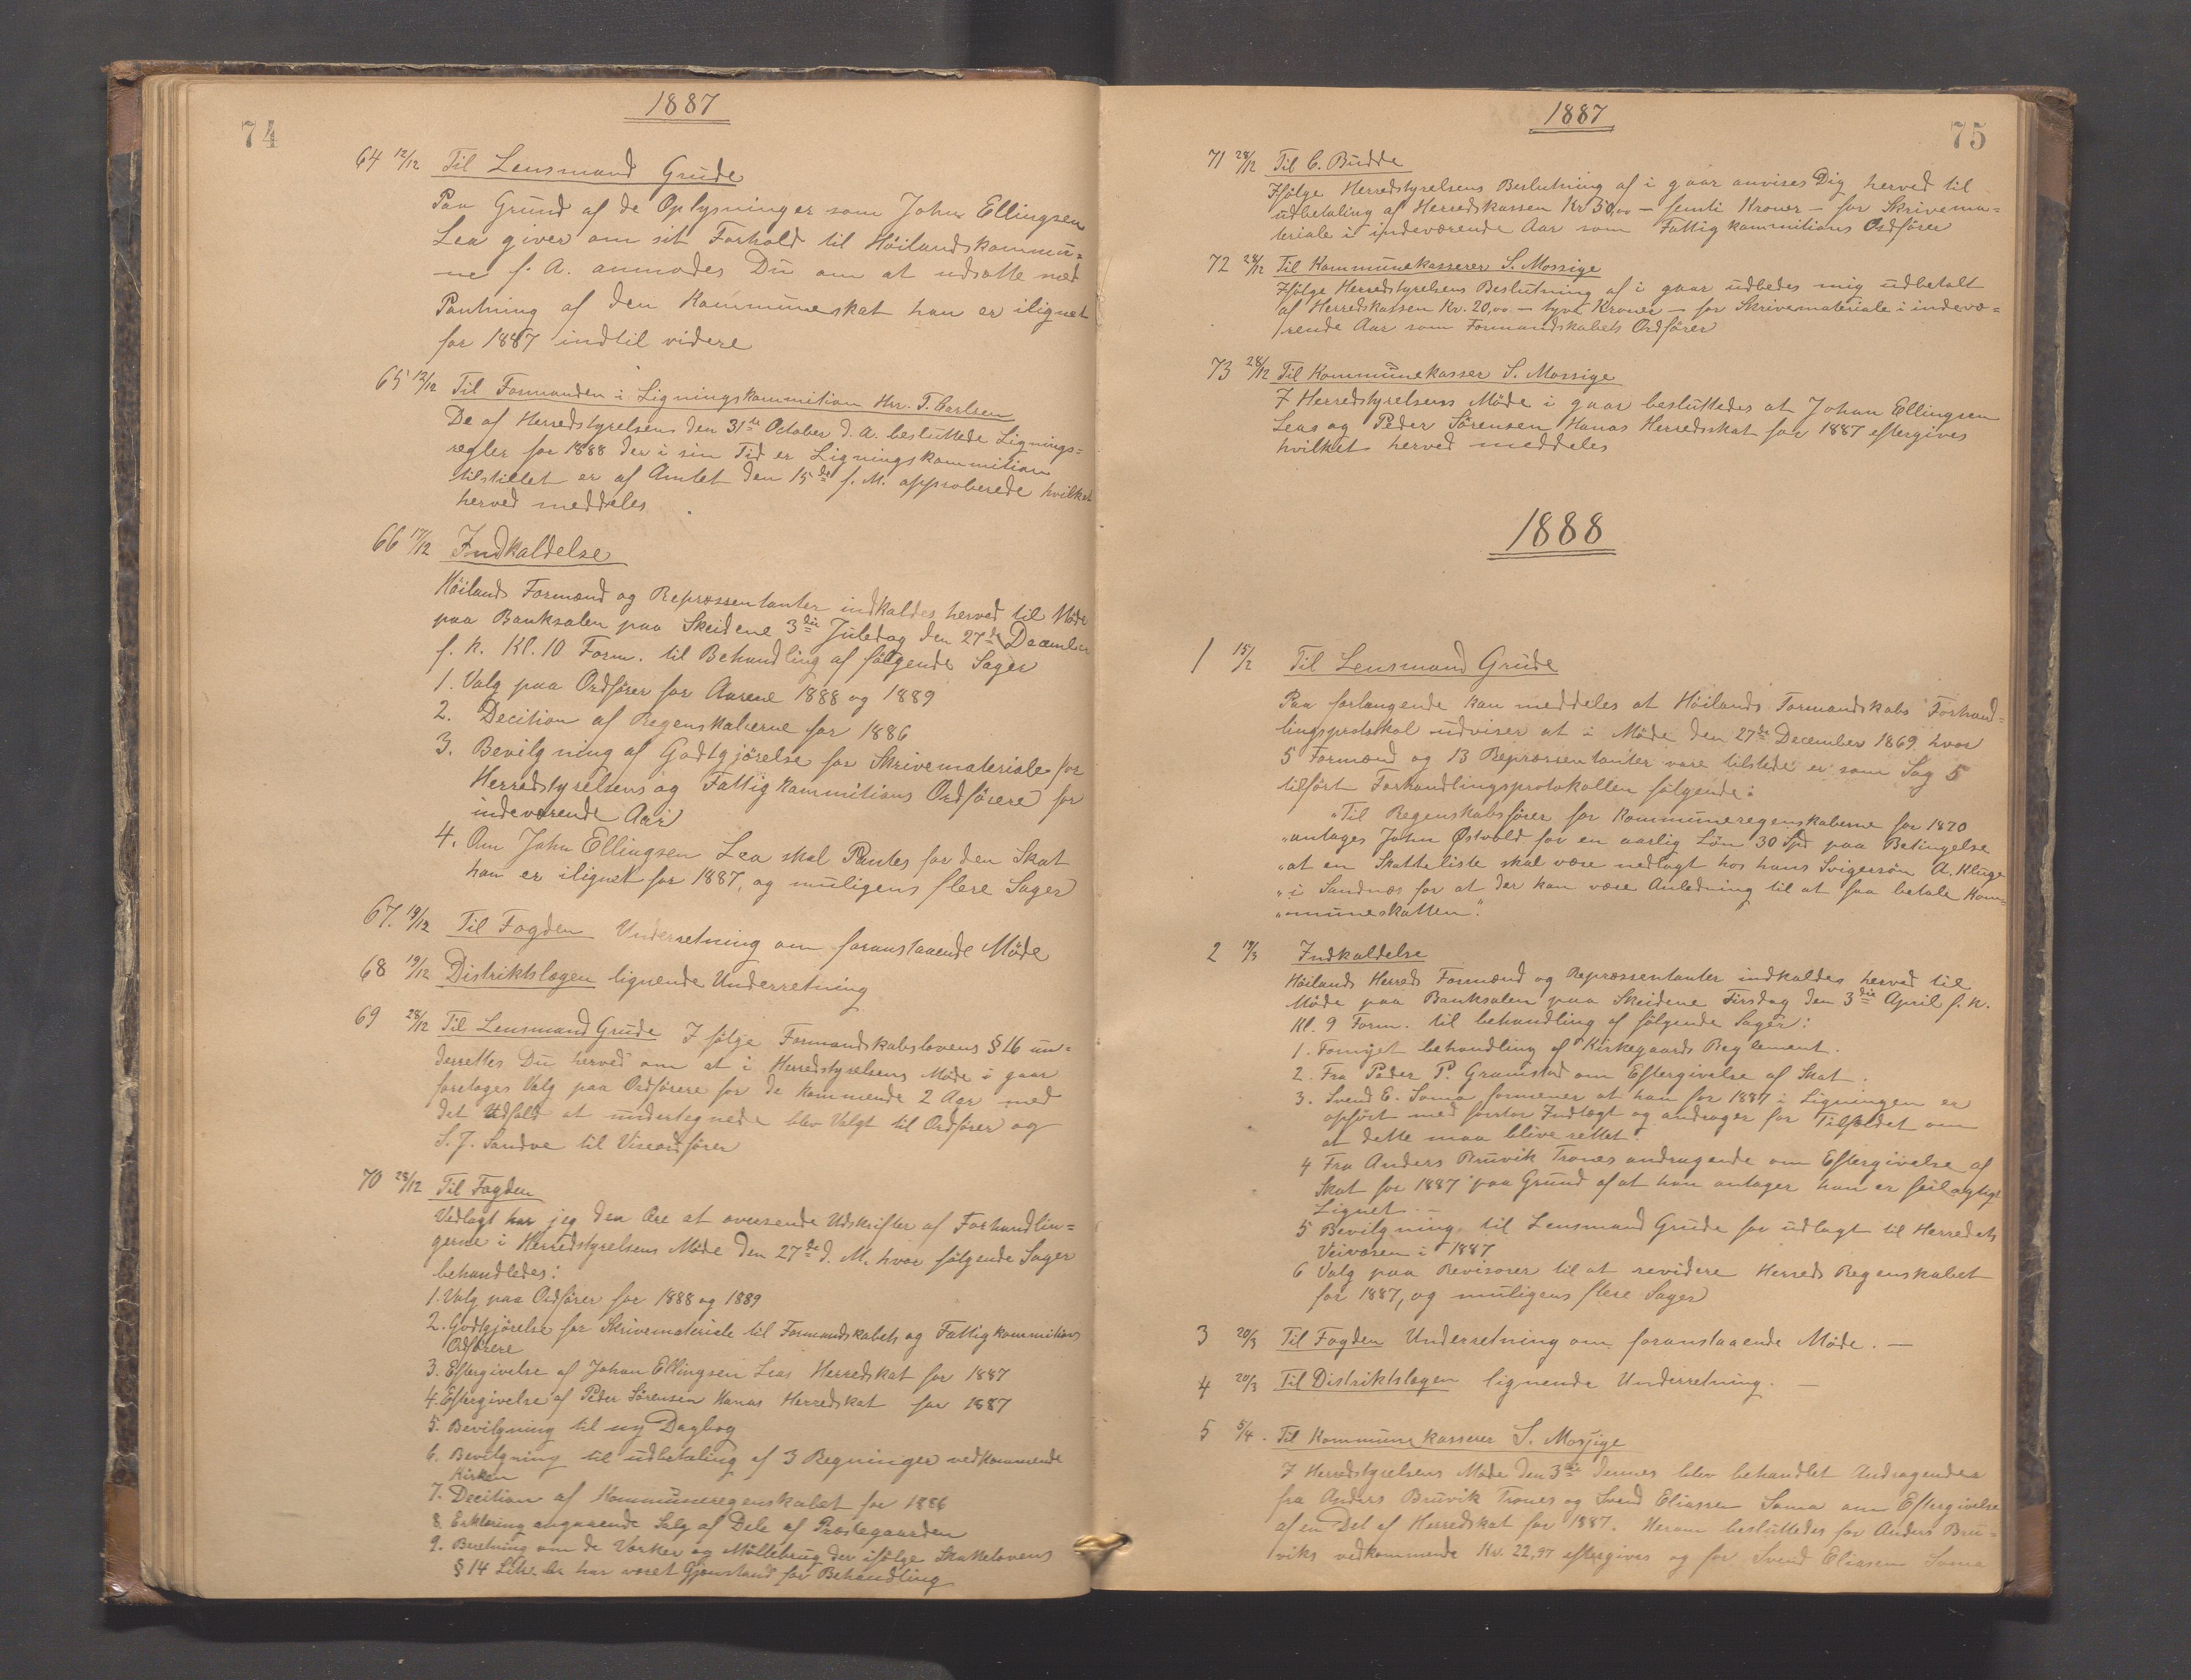 74
1887
64 12/12 Til Lensmand Grude
Paa Grund af de Oplysninger som John Ellingsen
Lea giver om sit Forhold til Höilandskommu=
ne f. A. anmodes Du om at udsætte med
Pantning af den Kommuneskat han er ilignet
for 1887 indtil videre
65 12/12 Til Formanden i Ligningskommition Hrr. T. Carlsen
De af Herredstyrelsens den 31te October d. A. besluttede Lignings=
regler for 1888 der i sin Tid er Ligningskommition
tilstillet er af Amtet den 15de f. M. approberede hvilket
herved meddeles
66 17/12 Indkaldelse
Höilands Formænd og Repræsentanter indkaldes herved til Möde
paa Banksalen paa Skeidene 3die Juledag den 27de December
f. k. Kl. 10 Form. til Behandling af fölgende Sager
1. Valg paa Ordförer for Aarene 1888 og 1889
2. Decition af Regenskaberne for 1886
3. Bevilgning af Godtgjörelse for Skrivemateriale for
Herredstyrelsens og Fattigkommitions Ordförere for
indeværende Aar
4. Om John Ellingsen Lea skal Pantes for den Skat
han er ilignet for 1887, og muligens flere Sager
67. 19/12 Til Fogden Underretning om foranstaaende Möde
68 19/12 Distriktslægen lignende Underretning
69 28/12 Til Lensmand Grude I fölge Formandskabslovens § 16 un=
derrettes Du herved om at i Herredstyrelsens Möde i gaar
foretoges Valg paa Ordförere for de kommende 2 Aar med
det Udfald at undertegnede blev Valgt til Ordförer og
S. J. Sandve til Viseordförer
70 28/12 Til Fogden
Vedlagt har jeg den Ære at oversende Udskrifter af Forhandlin=
gerne i Herredstyrelsens Möde den 27de d. M. hvor fölgende Sager
behandledes:
1. Valg paa Ordförer for 1888 og 1889
2. Godtgjörelse for Skrivemateriale til Formandskabets og Fattigkommitions
Ordförere
3. Eftergivelse af Johan Ellingsen Leas Herredskat for 1887
4. Eftergivelse af Peder Sörensen Hanas Herredskat for 1887
5. Bevilgning til ny Dagbog
6. Bevilgning til udbetaling af 3 Regninger vedkommende
Kirken
7. Decition af Kommuneregenskabet for 1886
8. Erklæring angaaende Salg af Dele af Præstegaarden
9. Beretning om de Værker og Möllebrug der ifölge Skattelovens
§ 14 har været Gjenstand for Behandling
75
1887
71 28/12 Til C. Budde
Ifölge Herredstyrelsens Beslutning af i gaar anvises Dig herved til
udbetaling af Herredskassen Kr 50,00 – femti Kroner – for Skrivema=
teriale i indeværende Aar som Fattigkommitions Ordförer
72 28/12 Til Kommunekasserer S. Mossige
Ifölge Herredstyrelsens Beslutning af i gaar udbedes mig udbetalt
af Herredskassen Kr. 20,00 – tyve Kroner – for Skrivemateriale i indevæ=
rende Aar som Formandskabets Ordförer
73 28/12 Til Kommunekasser S. Mossige
I Herredstyrelsens Möde i gaar besluttedes at Johan Ellingsen
Leas og Peder Sörensen Hanas Herredsskat for 1887 eftergives
hvilket herved meddeles
1888
1 15/2 Til Lensmand Grude
Paa forlangende kan meddeles at Höilands Formandskabs Forhand=
lingsprotokol udviser at i Möde den 27de December 1869 hvor
5 Formænd og 13 Repræsentanter vare tilstede er som Sag 5
tilfört Forhandlingsprotokollen fölgende:
"Til Regenskabsförer for Kommuneregenskaberne for 1870
"antages John Østvold for en aarlig Lön 30 Spd paa Betingelse
"at en Skatteliste skal være nedlagt hos hans Svigersön A. Kluge
"i Sandnæs for at der kan være Anledning til at faa betale Kom=
"muneskatten".
2 19/3 Indkaldelse
Höilands Herreds Formænd og Repræssentanter indkaldes herved til
Möde paa Banksalen paa Skeidene Tirsdag den 3die April f. k.
Kl. 9 Form. til behandling af fölgende Sager:
1. Fornyet behandling af Kirkegaards Reglement.
2. Fra Peder P. Gramstad om Eftergivelse af Skat.
3. Svend E. Soma formener at han for 1887 i Ligningen er
opfört med forstor Indtægt og andrager for Tilfældet om
at dette maa blive rettet.
4 Fra Anders Bruvik Trones andragende om Eftergivelse af
Skat for 1887 paa Grund af at han antager han er feilagtigt
Lignet. –
5 Bevilgning til Lensmand Grude for udlagt til Herredets
Veivæsen i 1887
6 Valg paa Revisorer til at revidere Herreds Regenskabet
for 1887, og muligens flere Sager
3 20/3 Til Fogden Underretning om foranstaaende Möde. –
4 20/3 Til Distriktslægen lignende Underretning. –
5 5/4. Til Kommunekasserer S. Mossige
I Herredstyrelsens Möde den 3die dennes blev behandlet Andragender
fra Anders Bruvik Trones og Svend Eliassen Soma om Eftergivelse
af en Del af Herredskat for 1887. Herom besluttedes for Anders Bru=
viks vedkommende Kr. 22,97 eftergives og for Svend Eliasen Soma